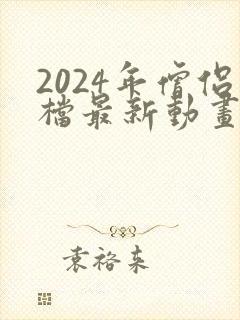 2024年僧侣
檔最新動畫
袁裕来